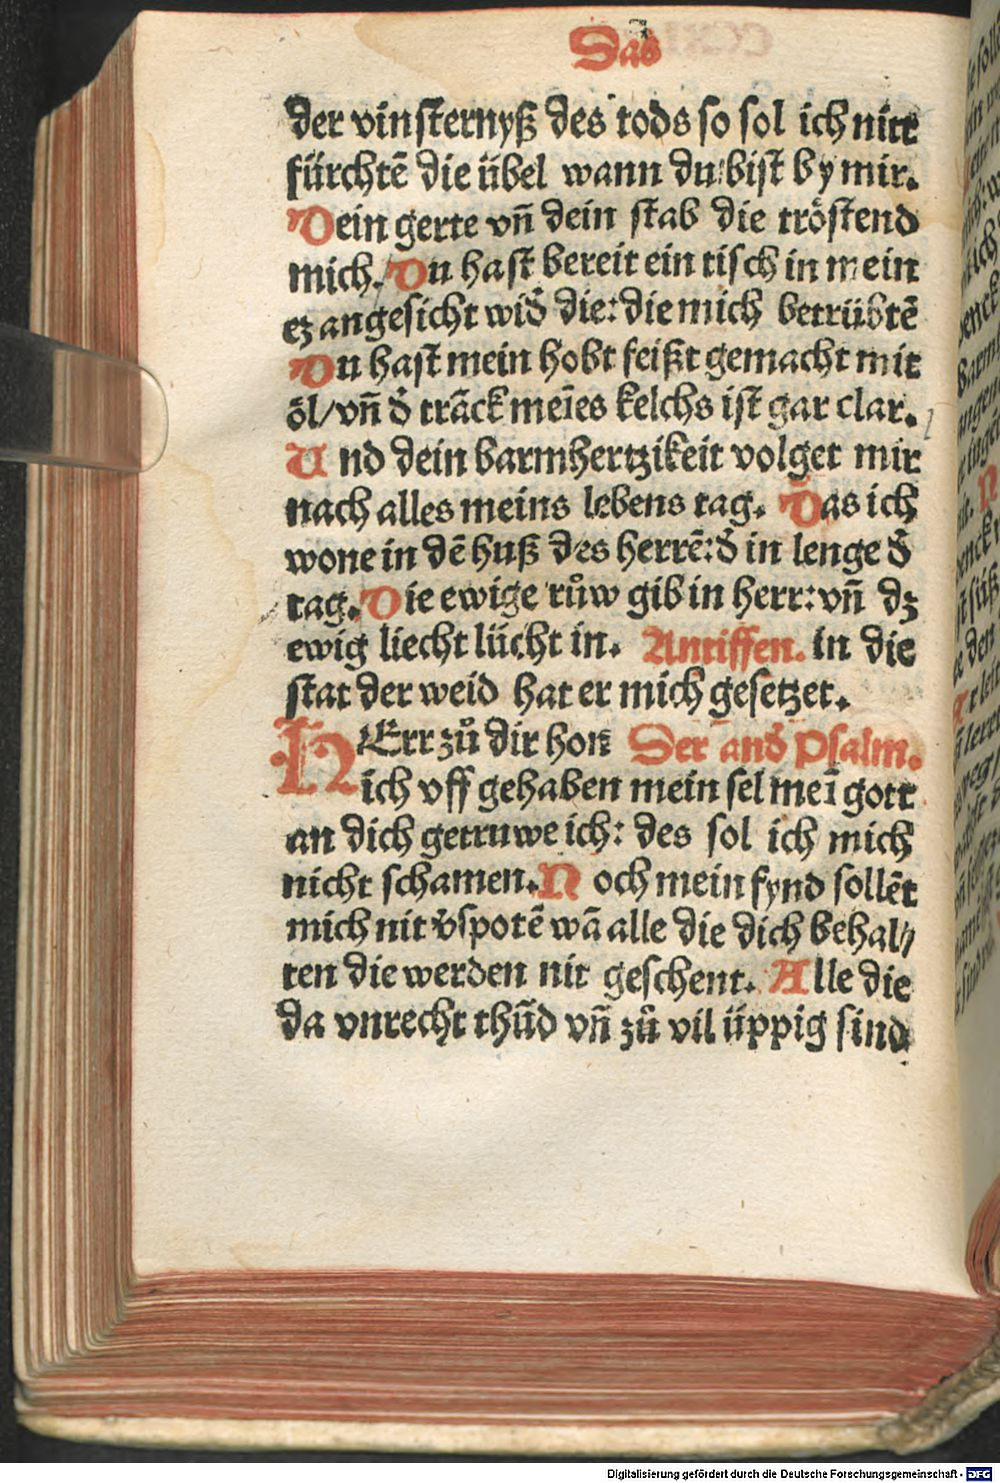 Das
der vinsternyß des tods so sol ich nitt
fürchtē die übel wann du bist by mir.
Dein gerte vñ dein stab die tröstend
mich. Du hast bereit ein tisch in mein
ez angesicht wid̄ die: die mich betrübtē
Du hast mein hobt feißt gemacht mit
öl/vñ d̄ trāck meīes kelchs ist gar clar.
Und dein barmhertzikeit volget mir
nach alles meins lebens tag. Das ich
wone in dē huß des herrē: d̄ in lenge d̄
tag. Die ewige růw gib in herr: vñ dz
ewig liecht lücht in. Antiffen. In die
stat der weid hat er mich gesetzet.
HErr zů dir hon Der and̄ Psalm.
ich vff gehaben mein sel meī gott
an dich getruwe ich: des sol ich mich
nicht schamen. Noch mein fynd sollēt
mich nit v̄spotē wā alle die dich behal//
ten die werden nit geschent. Alle die
da vnrecht thūd vñ zů vil üppig sind
Digitalisierung gefördert durch die Deutsche Forschungsgemeinschaft - DFG